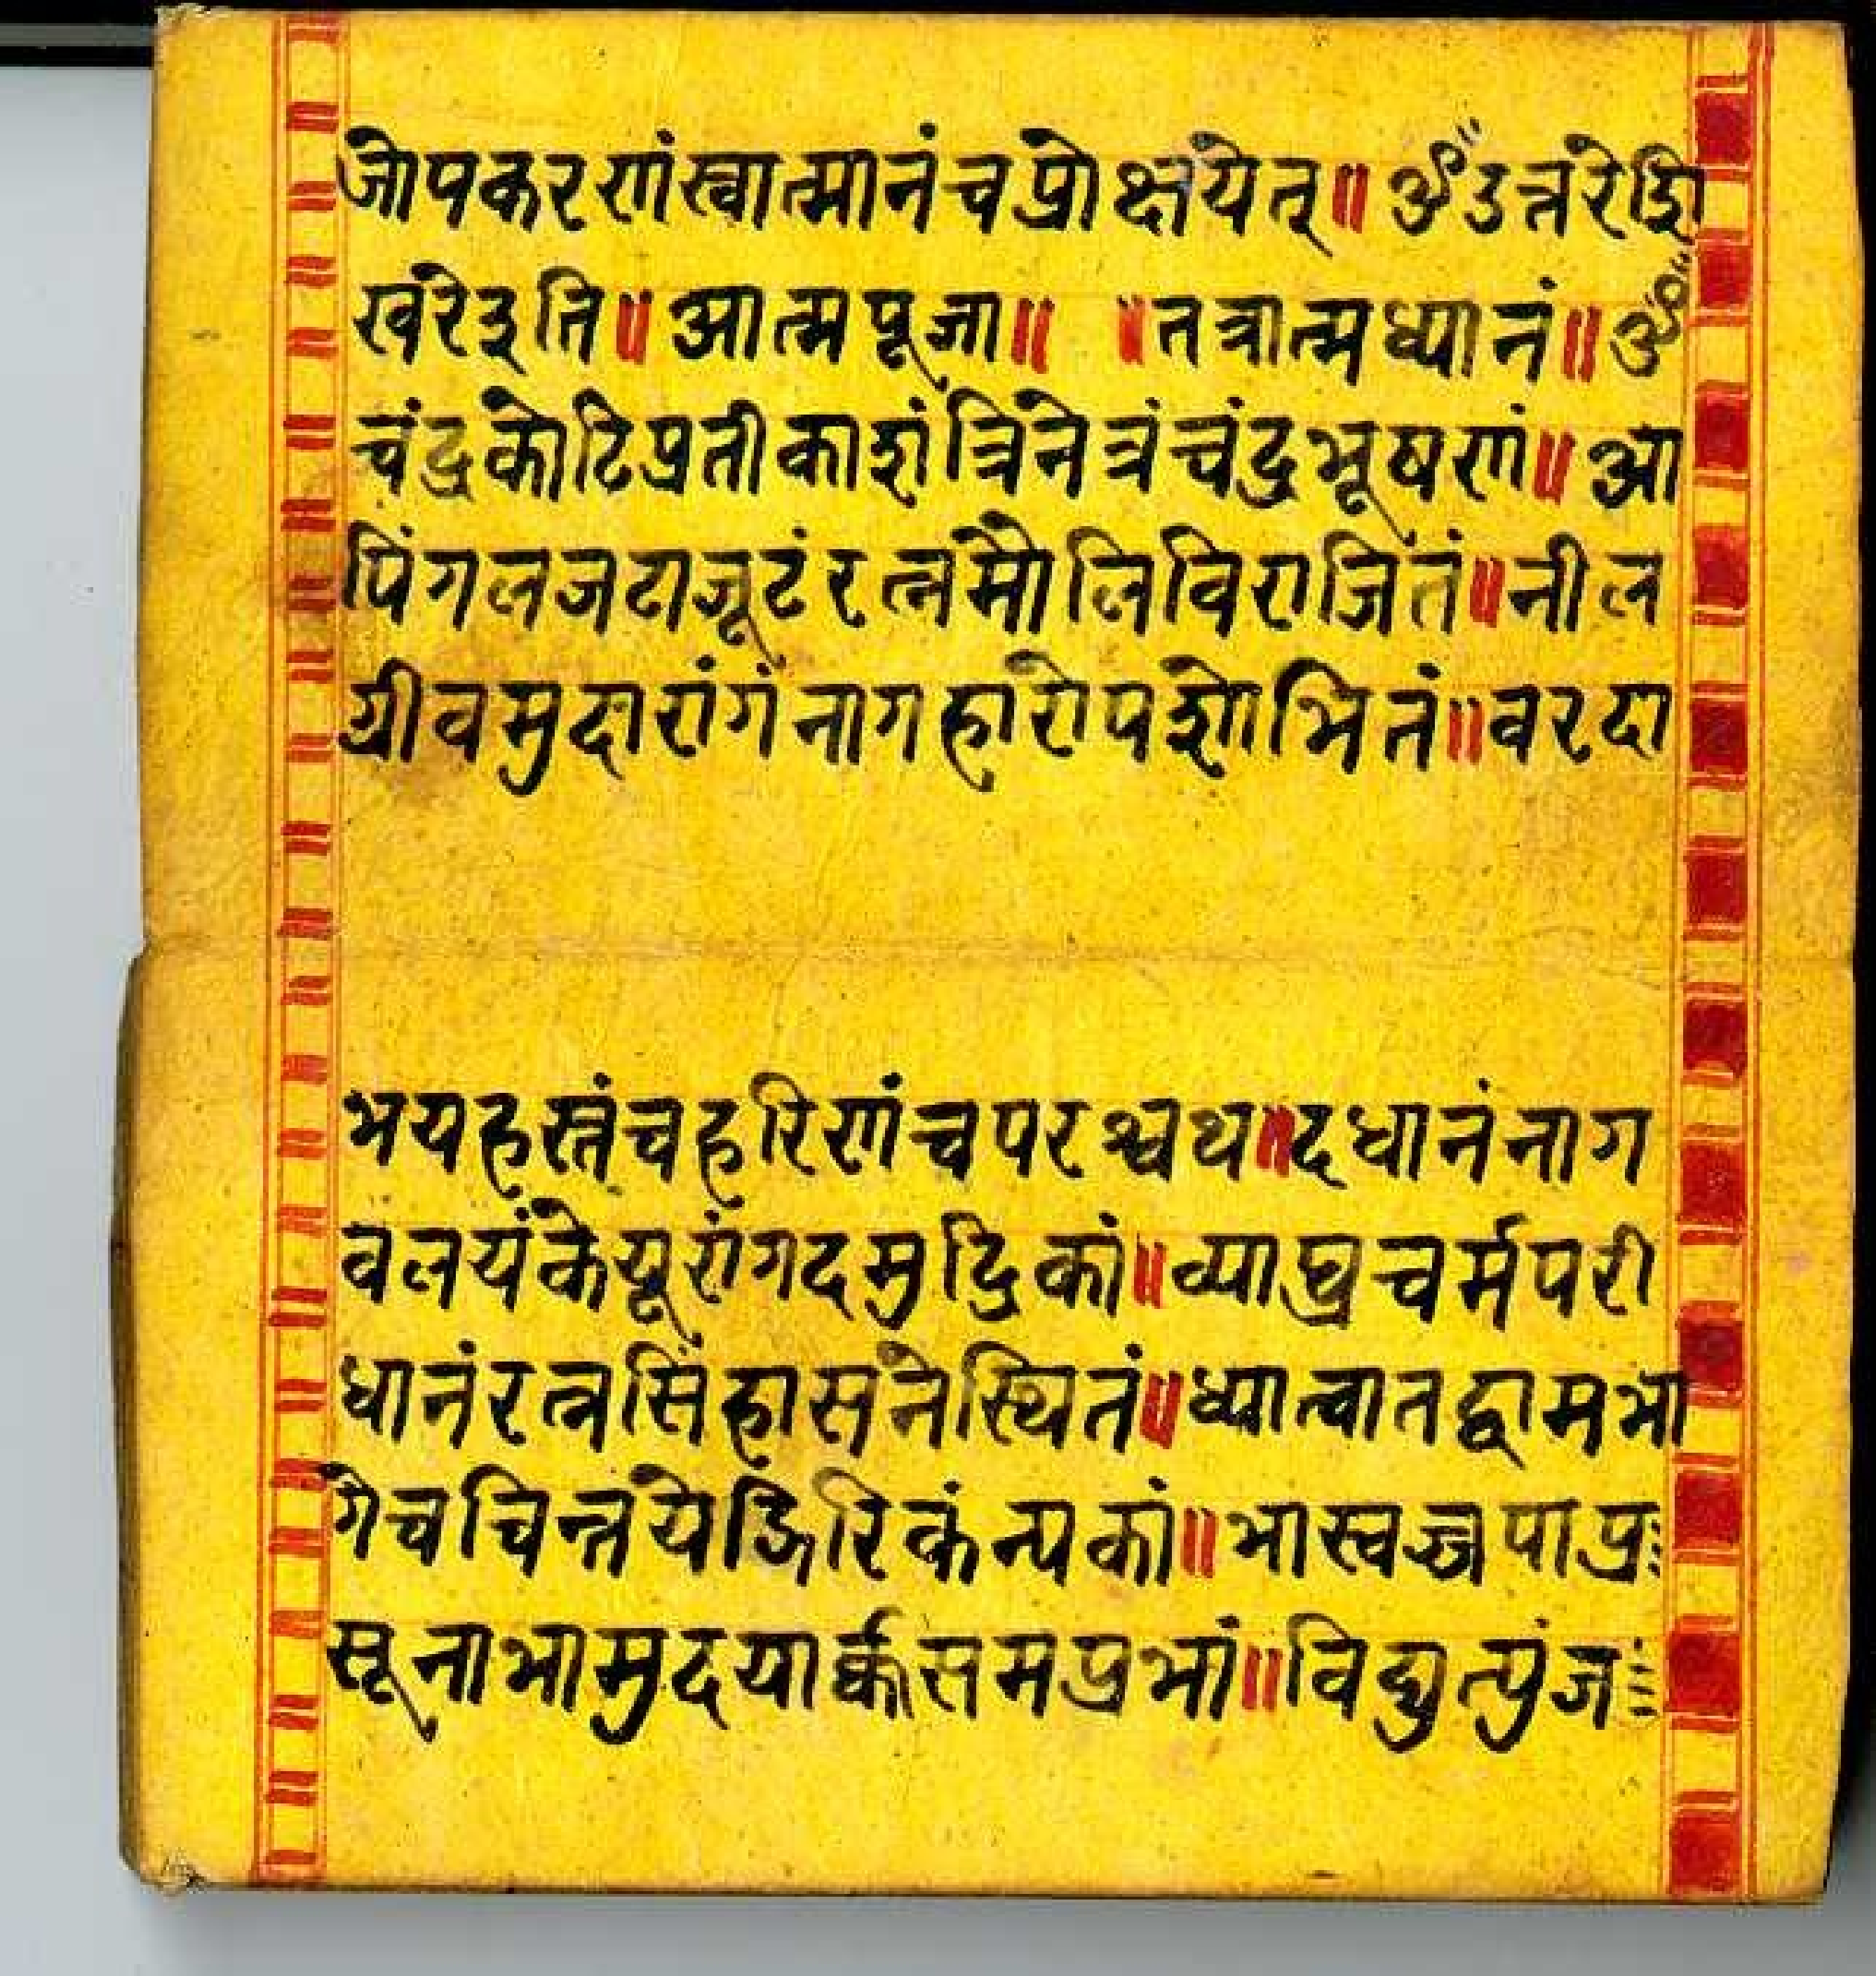 जोपकरणंस्वात्मानंचप्रोक्षयेत्॥ ॐउत्तरेशि
खरेइति॥आत्मपूजा॥ ॥तत्रात्मध्यानं॥ॐ
चंद्रकोटिप्रतीकाशंत्रिनेत्रंचंद्रभूषणं॥आ
पिंगलजटाजूटंरत्नमौलिविराजितं॥नील
ग्रीवमुदारांगंनागहारोपशोभितं॥वरदा
भयहस्तंचहरिणंचपरश्वथ॥दधानंनाग
वलयंकेयूरांगदमुद्रिकां॥व्याघ्रचर्मपरी
धानंरत्नसिंहासनेस्थितं॥ध्यात्वातद्वामभा
गेचचिन्तयेद्गिरिकंन्यकां॥भास्वज्जपाप्र
सूनाभामुदयार्क्कसमप्रभां॥विद्युत्पुंज